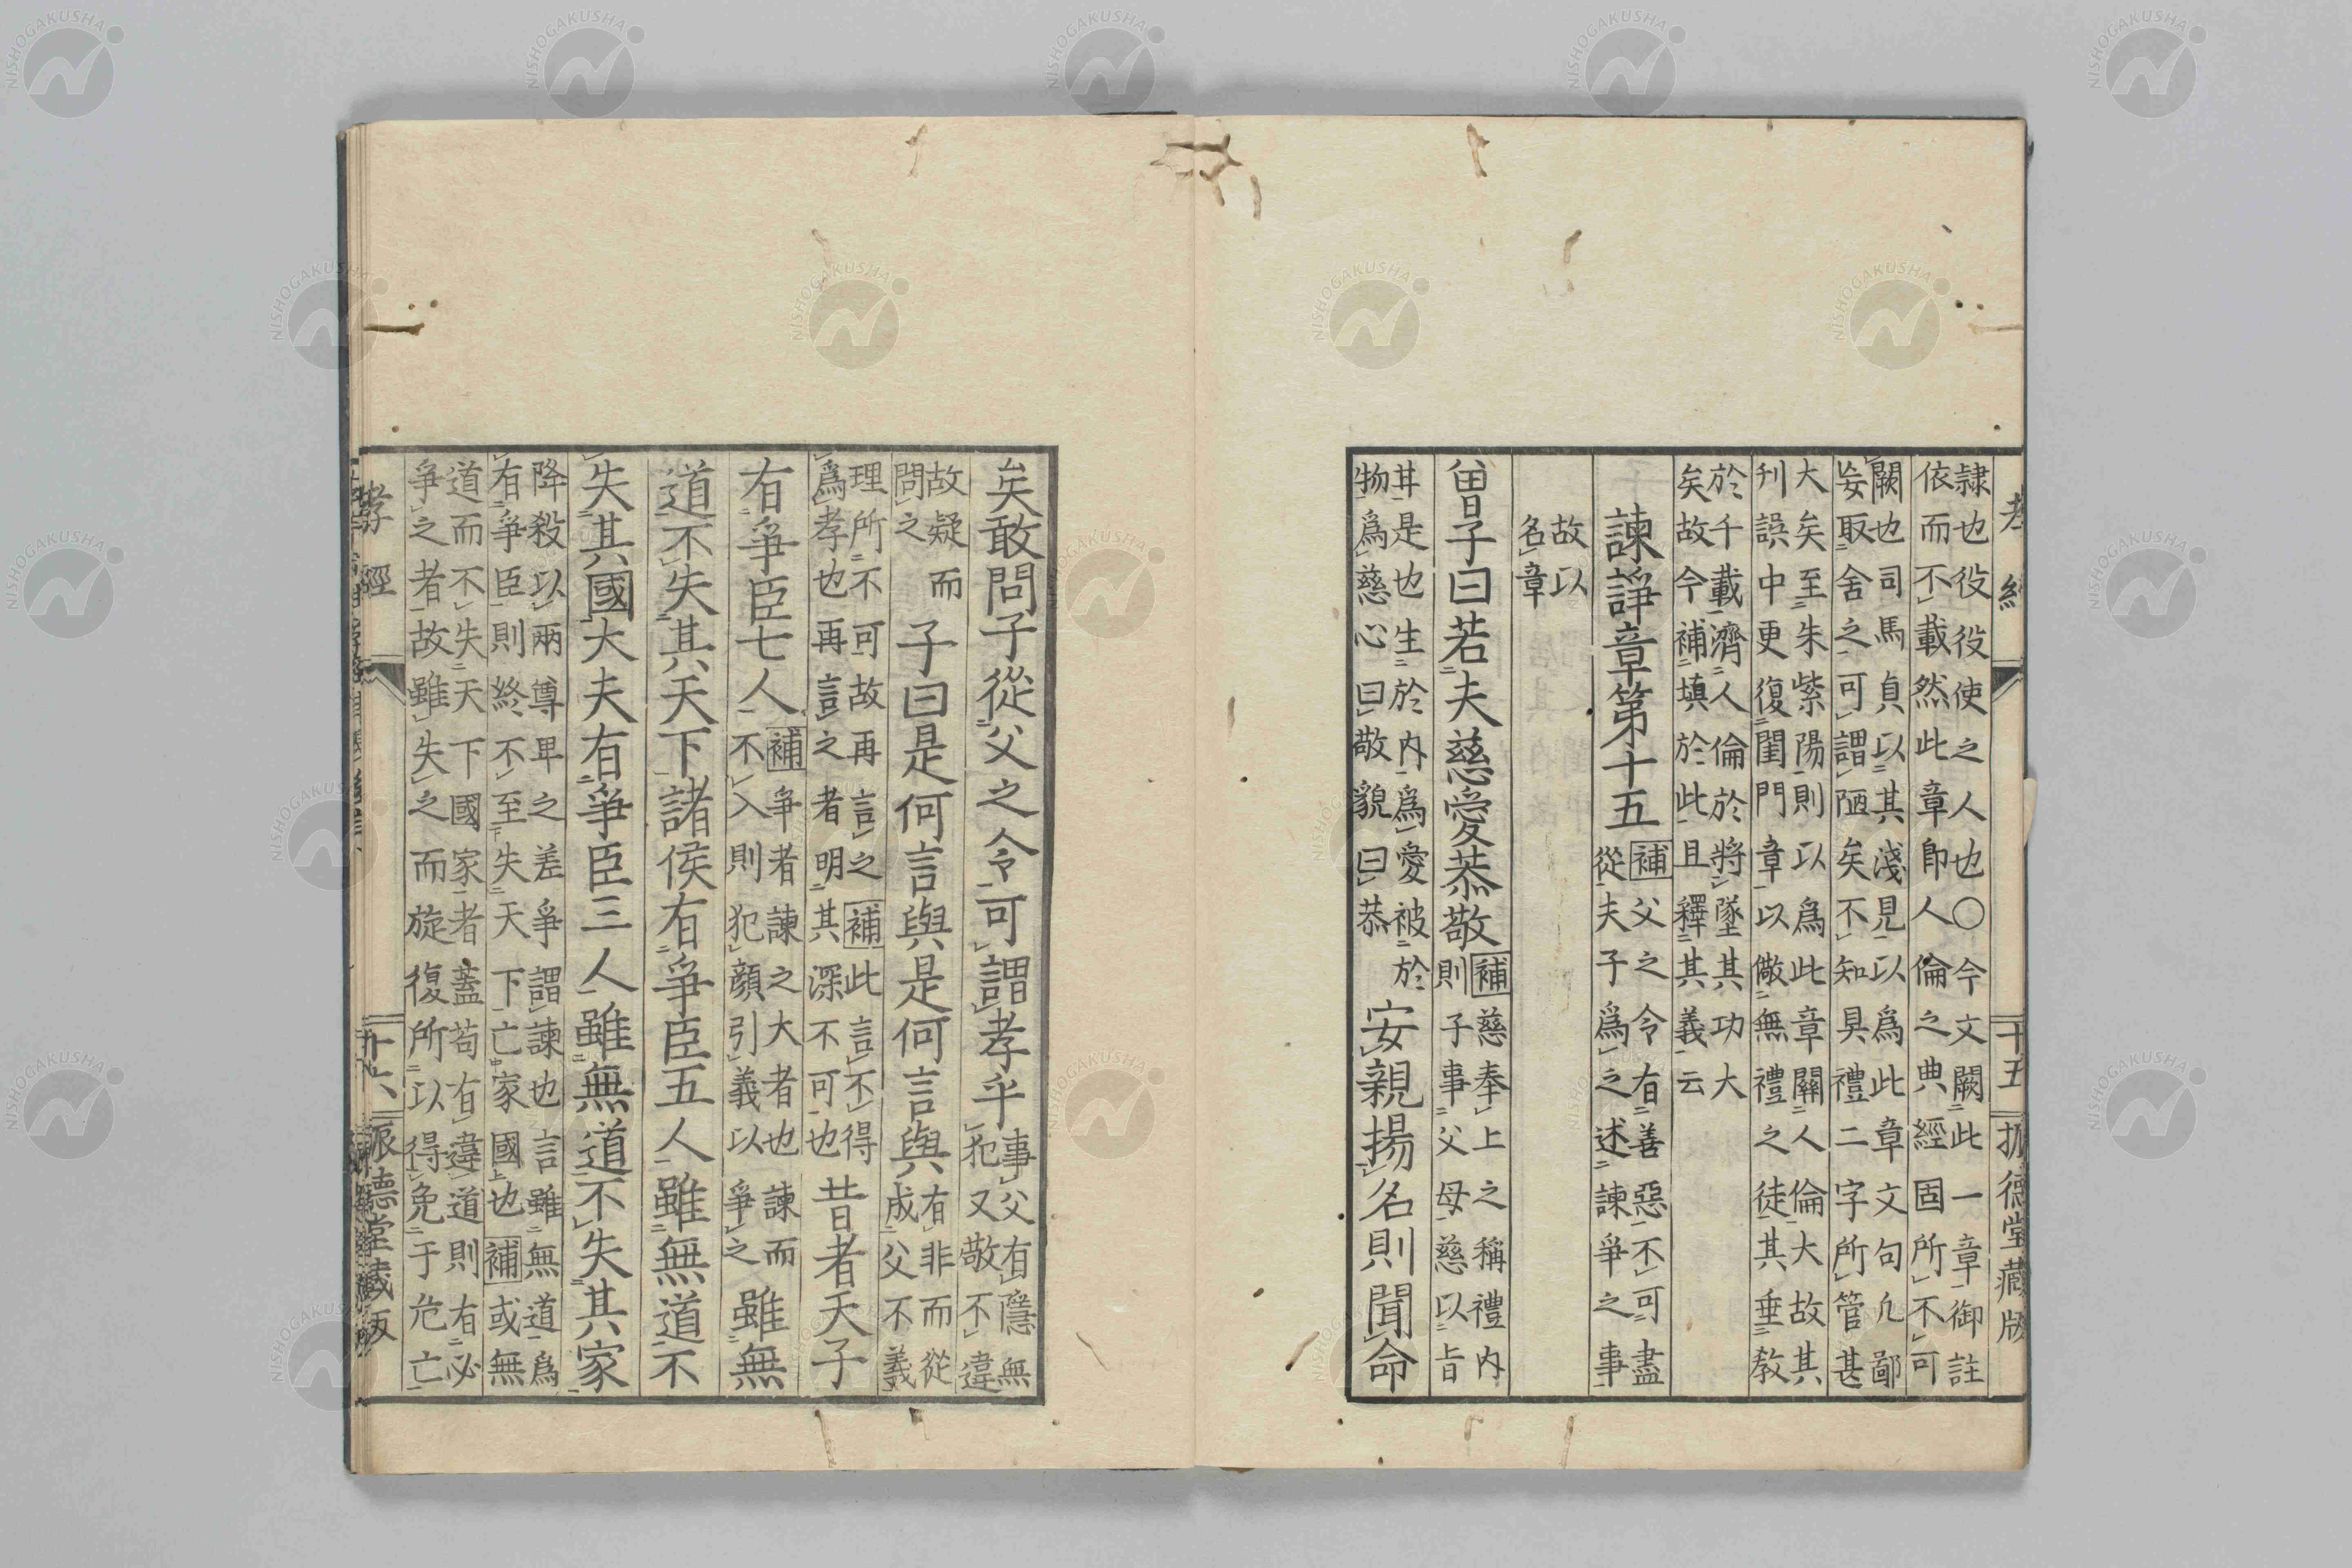 隷也役役使之人也〇今文闕此一章御註
依而不載然此章卽人倫之典經固所不可
闕也司馬貞以其淺見以爲此章文句凢鄙
妄取舍之可謂陋矣不知具禮二字所管甚
大矣至朱紫陽則以爲此章關人倫大故其
刊誤中更復閨門章以儆無禮之徒其垂教
於千載濟人倫於將墜其功大
矣故今補塡於此且釋其義云
諫諍章第十五
補父之令有善惡不可盡
從夫子爲之述諫爭之事
故以
名章
曽子曰若夫慈愛恭敬
補慈奉上之稱禮內
則子事父母慈以旨
甘是也生於內爲愛被於
物爲慈心曰敬貌曰恭
安親揚名則聞命
孝經
十五
振德堂藏版
矣敢問子從父之令可謂孝乎
事父有隱無
犯又敬不違
故疑而
問之
子曰是何言與是何言與
有非而從
成父不義
理所不可故再言之補此言不得
爲孝也再言之者明其深不可也
昔者天子
有爭臣七人
補爭者諫之大者也諫而
不入則犯顏引義以爭之
雖無
道不失其天下諸侯有爭臣五人雖無道不
失其國大夫有爭臣三人雖無道不失其家
降殺以兩尊卑之差爭謂諫也言雖無道爲
有爭臣則終不至失天下亡家國也補或無
道而不失天下國家者蓋苟有違道則有必
爭之者故雖失之而旋復所以得免于危亡
孝經
十六
振德堂藏版
NISHOGAKUSHA